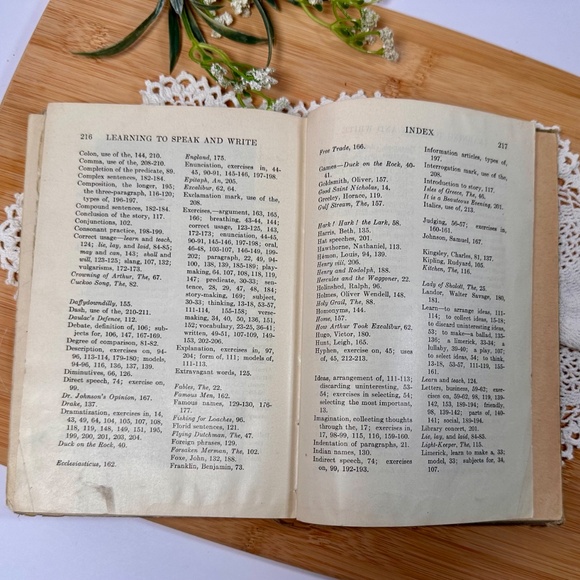 216 LEARNING TO SPEAK AND WRITE
Colon, use of the, 144, 210.
Comma, use of the, 208-210.
Completion of the predicate, 89.
Complex sentences, 182-184.
Composition, the longer, 195;
the three-paragraph, 116-120;
types of, 196-197.
Compound sentences, 182-184.
Conclusion of the story, 117.
Conjunctions, 102.
Consonant practice, 198-199.
Correct usage—learn and teach,
124; lie, lay, and laid, 84-85;
may and can, 143; shall and
will, 123-125; slang, 107, 132;
vulgarisms, 172-173.
Crowning of Arthur, The, 67.
Cuckoo Song, The, 82.
Daffydowndilly, 155.
Dash, use of the, 210-211.
Daulac's Defence, 112.
Debate, definition of, 106; sub-
jects for, 106, 147, 167-169.
Degree of comparison, 81-82.
Description, exercises on, 94-
96, 113-114, 179-180; models,
94-96, 116, 136, 137, 139.
Diminutives, 66, 126.
Direct speech, 74; exercise on,
99.
Dr. Johnson's Opinion, 167.
Drake, 137.
Dramatization, exercises in, 14,
43, 49, 64, 104, 105, 107, 108,
118, 119, 148, 149, 151, 195,
199, 200, 201, 203, 204.
Duck on the Rock, 40.
Ecclesiasticus, 162.
England, 175.
Enunciation, exercises in, 44-
45, 90-91, 145-146, 197-198.
Epitaph, An, 205.
Excalibur, 62, 64.
Exclamation mark, use of the,
208.
Exercises—argument, 163, 165,
166; breathing, 43-44, 144;
correct usage, 123-125, 143,
172-173; enunciation, 44-45,
90-91, 145-146, 197-198; oral,
46-48, 103-107, 146-149, 199-
202; paragraph, 22, 49, 94-
100, 138, 139, 185-189; play-
making, 64, 107, 108, 118, 119,
147; predicate, 30-33; sen-
tence, 28, 29, 47, 48, 184;
story-making, 169; subject,
30-33; thinking, 13-18, 53-57,
111-114, 155-158; verse-
making, 34, 40, 50, 136, 151,
152; vocabulary, 23-25, 36-41;
written, 49-51, 107-109, 149-
153, 202-206.
Explanation, exercises in, 97,
204; form of, 111; models of,
111-113.
Extravagant words, 125.
Fables, The, 22.
Famous Men, 162.
Famous names, 129-130, 176-
177.
Fishing for Loaches, 96.
Florid sentences, 121.
Flying Dutchman, The, 47.
Foreign phrases, 129.
Forsaken Merman, The, 102.
Foxe, John, 132, 188.
Franklin, Benjamin, 73.
INDEX 217
Free Trade, 166.
Games—Duck on the Rock, 40-
41.
Goldsmith, Oliver, 157.
Good Saint Nicholas, 14.
Greeley, Horace, 110.
Gulf Stream, The, 157.
Hark! Hark! the Lark, 58.
Harris, Beth, 135.
Hat speeches, 201.
Hawthorne, Nathaniel, 113.
Hémon, Louis, 94, 139.
Henry viii, 206.
Henry and Rodolph, 188.
Hercules and the Waggoner, 22.
Holinshed, Ralph, 96.
Holmes, Oliver Wendell, 148.
Holy Grail, The, 88.
Homonyms, 144.
Horse, 157.
How Arthur Took Excalibur, 62.
Hugo, Victor, 180.
Hunt, Leigh, 165.
Hyphen, exercise on, 45; uses
of, 45, 212-213.
Ideas, arrangement of, 111-113;
discarding uninteresting, 53-
54; exercises in selecting, 54;
selecting the most important,
13.
Imagination, collecting thoughts
through the, 17; exercises in,
17, 98-99, 115, 116, 159-160.
Indentation of paragraphs, 21.
Indian names, 130.
Indirect speech, 74; exercises
on, 99, 192-193.
Information articles, types of,
197.
Interrogation mark, use of the,
208.
Introduction to story, 117.
Isles of Greece, The, 45.
It is a Beauteous Evening, 201.
Italics, use of, 213.
Judging, 56-57; exercises in,
160-161.
Johnson, Samuel, 167.
Kingsley, Charles, 81, 137.
Kipling, Rudyard, 105.
Kitchen, The, 116.
Lady of Shalott, The, 25.
Landor, Walter Savage, 180,
181.
Learn—to arrange ideas, 111-
114; to collect ideas, 15-19;
to discard uninteresting ideas,
53; to make—a ballad, 135-
136; a limerick, 33-34; a
lullaby, 39-40; a play, 107;
to select ideas, 54; to think,
13-18, 53-57, 111-115, 155-
158.
Learn and teach, 124.
Letters, business, 59-62; exer-
cises on, 59-62, 98, 119, 139-
142, 153, 189-194; friendly,
98, 139-142; parts of, 140-
141; social, 189-194.
Library concert, 201.
Lie, lay, and laid, 84-85.
Light-Keeper, The, 115.
Limerick, learn to make a, 33;
model, 33; subjects for, 34,
107.